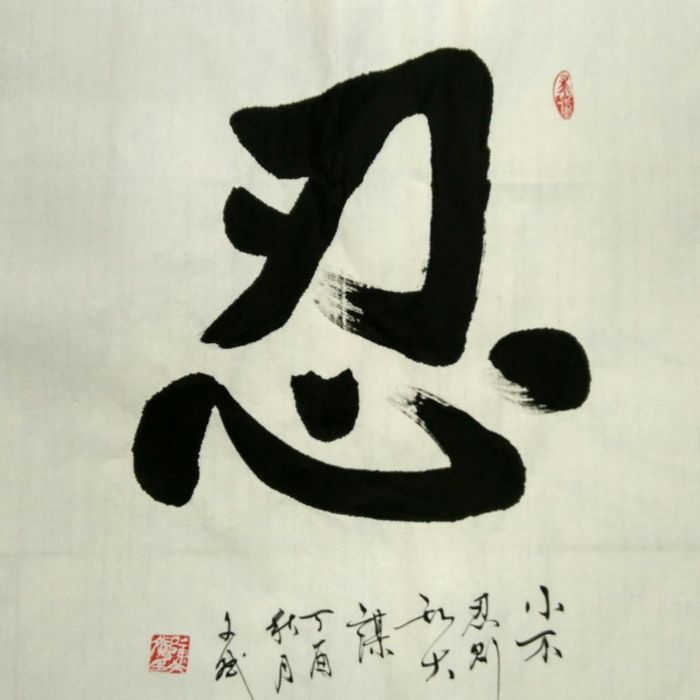 忍
小不
忍则
乱大
謀
丁酉
秋月